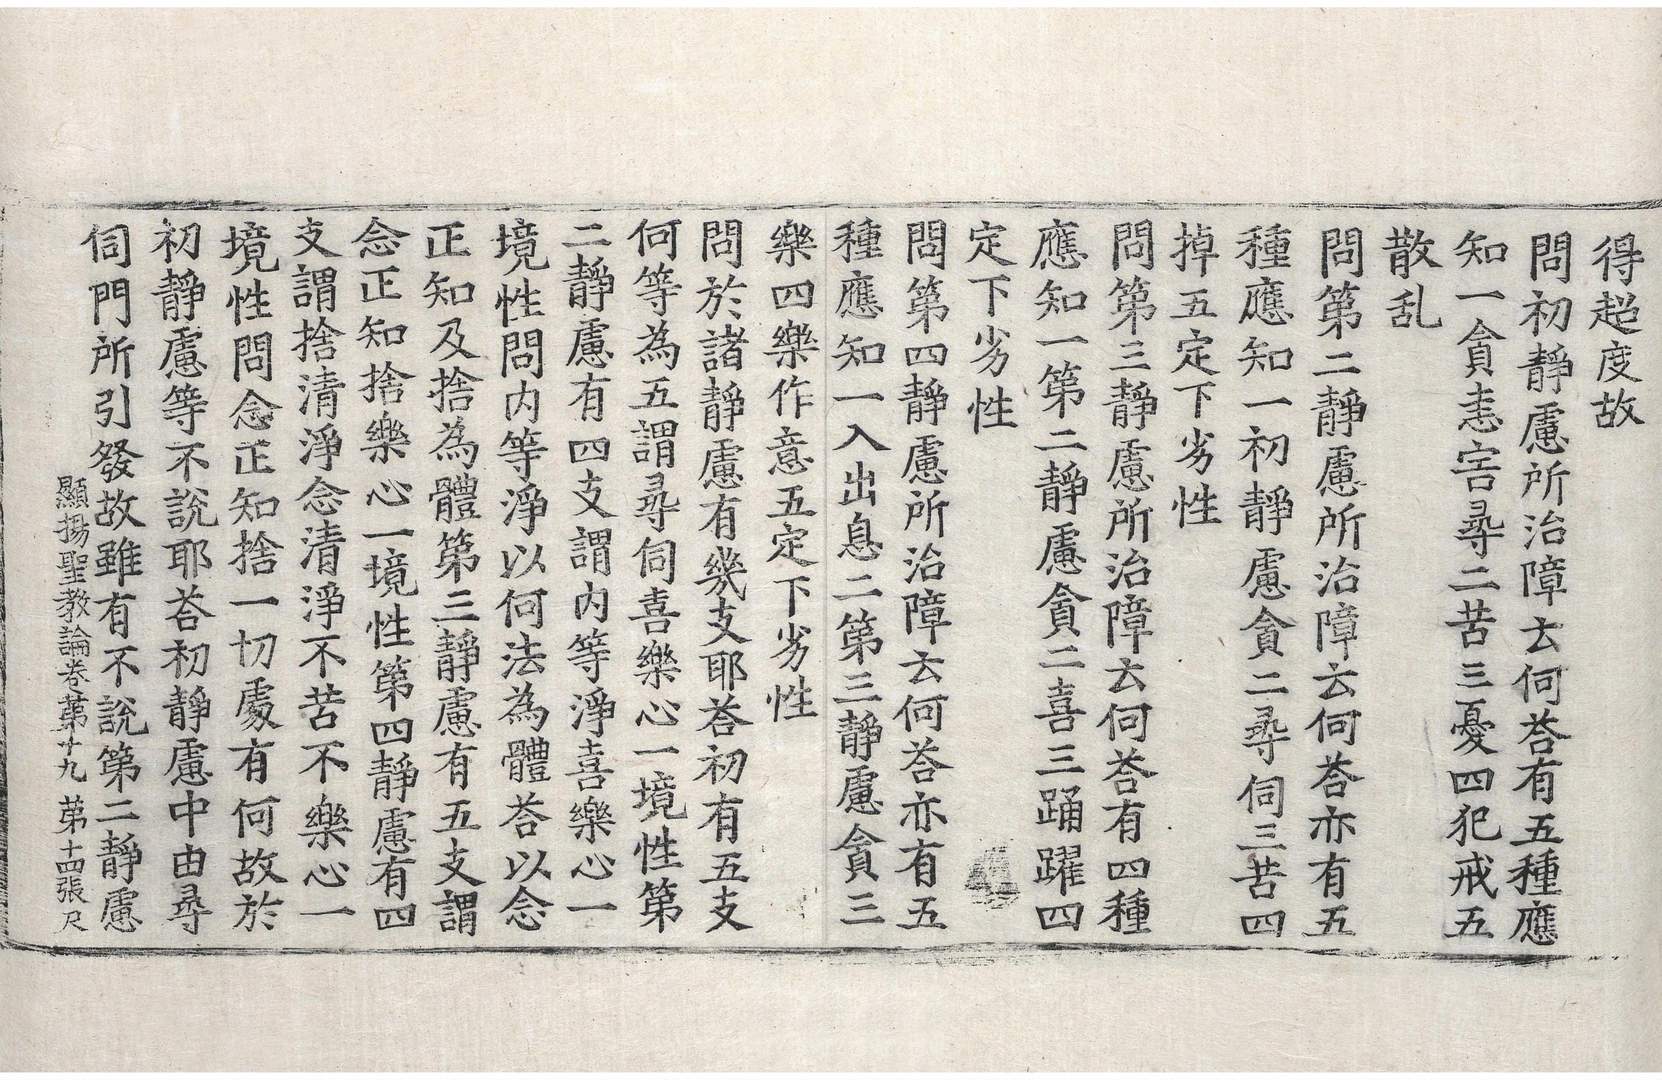 得超度故
問初靜慮所治障云何荅有五種應
知一貪恚害尋二苦三憂四犯戒五
散乱
問第二靜慮所治障云何荅亦有五
種應知一初靜慮貪二尋伺三苦四
掉五定下劣性
問第三靜慮所治障云何荅有四種
應知一第二靜慮貪二喜三踊躍四
定下劣性
問第四靜慮所治障云何荅亦有五
種應知一入出息二第三靜慮貪三
樂四樂作意五定下劣性
問於諸靜慮有幾支耶荅初有五支
何等為五謂尋伺喜樂心一境性第
二靜慮有四支謂內等淨喜樂心一
境性問內等淨以何法為體荅以念
正知及捨為體第三靜慮有五支謂
念正知捨樂心一境性第四靜慮有四
支謂捨清淨念清淨不苦不樂心一
境性問念正知捨一切處有何故於
初靜慮等不說耶荅初靜慮中由尋
伺門所引發故雖有不說第二靜慮
顯揚聖教論卷第十九 第十四張 尺